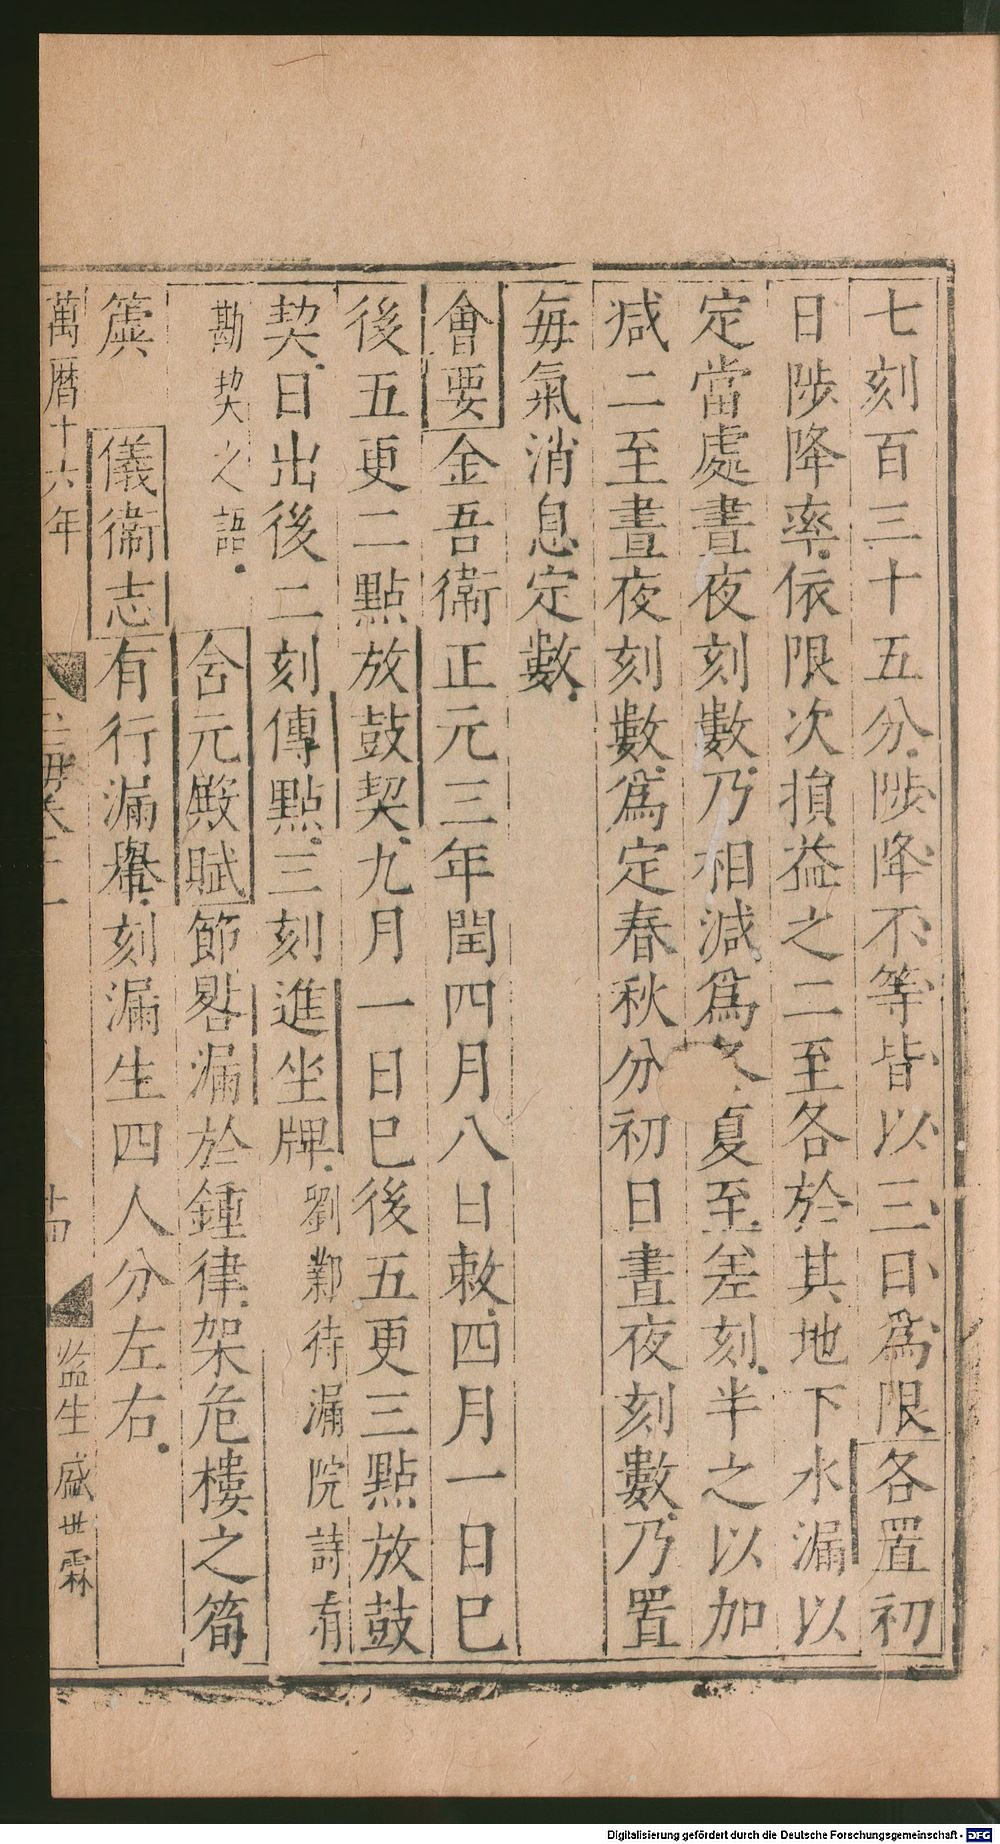 七刻百三十五分陟降不等皆以三日爲限各置初
日陟降率依限次損益之二至各於其地下水漏以
定當處晝夜刻數乃相減爲冬夏至差刻半之以加
減二至晝夜刻數爲定春秋分初日晝夜刻數乃置
每氣消息定數
會要金吾衞正元三年閏四月八日敕四月一日巳
後五更二點放鼓契九月一日巳後五更三點放鼓
契日出後二刻傳點三刻進坐牌劉鄴待漏院詩有
勘契之語 含元殿賦節晷漏於鍾律架危樓之筍
簴 儀衞志有行漏轝刻漏生四人分左右
萬曆十六年 十四 监生盛世霖
Digitalisierung gefördert durch die Deutsche Forschungsgemeinschaft - DFG